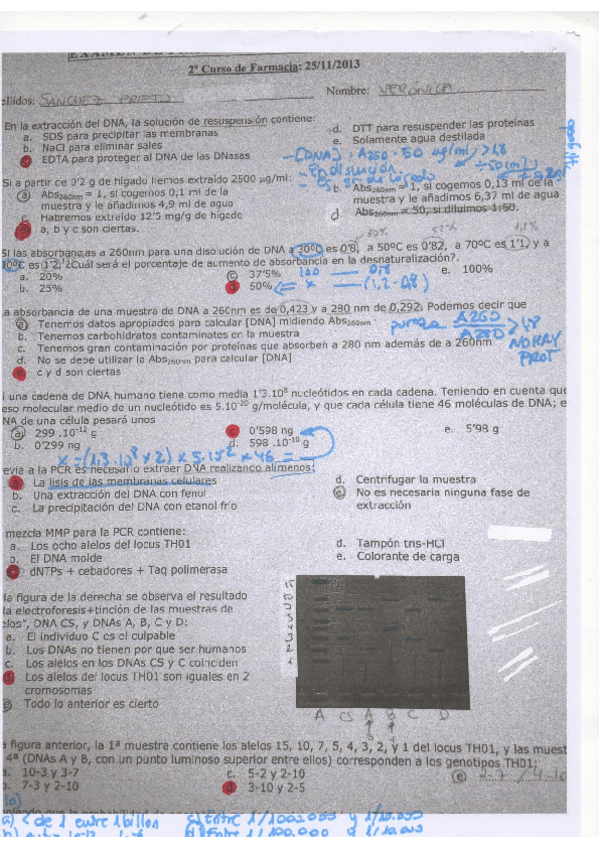 EXAMEN DE
2º Curso de Farmacia: 25/11/2013
ellidos: SANCHEZ PRIETO Nombre: VERÓNICA
En la extracción del DNA, la solución de resuspensión contiene:
a. SDS para precipitar las membranas
b. NaCl para eliminar sales
EDTA para proteger al DNA de las DNasas
d. DTT para resuspender las proteinas
e. Solamente agua destilada
[DNA]: A260 · 50 ug/ml
Si a partir de 0'2 g de hígado hemos extraído 2500 µg/ml:
a Abs260nm = 1, si cogemos 0,1 ml de la
muestra y le añadimos 4,9 ml de agua
c Habremos extraído 12'5 mg/g de hígado
a, b y c son ciertas.
Abs260nm = 1, si cogemos 0,13 ml de la
muestra y le añadimos 6,37 ml de agua
d Abs260nm = 50, si diluimos 1:50.
Si las absorbancias a 260nm para una disolución de DNA a 30ºC es 0'8, a 50ºC es 0'82, a 70ºC es 1'1, y a
90ºC es 1'2. ¿Cuál será el porcentaje de aumento de absorbancia en la desnaturalización?.
a. 20%
b. 25%
c 37'5%
d 50%
e. 100%
100 — 0'8
x — (1,2-0,8)
a absorbancia de una muestra de DNA a 260nm es de 0,423 y a 280 nm de 0,292. Podemos decir que
a Tenemos datos apropiados para calcular [DNA] midiendo Abs260nm
b. Tenemos carbohidratos contaminates en la muestra
c. Tenemos gran contaminación por proteínas que absorben a 280 nm además de a 260nm
d. No se debe utilizar la Abs260nm para calcular [DNA]
e c y d son ciertas
pureza A260/A280 > 1,8
NO HAY
PROT
i una cadena de DNA humano tiene como media 1'3.10⁸ nucleótidos en cada cadena. Teniendo en cuenta que
eso molecular medio de un nucleótido es 5.10⁻²⁰ g/molécula, y que cada célula tiene 46 moléculas de DNA; e
NA de una célula pesará unos
a) 299 .10⁻¹² g
b. 0'299 ng
c 0'598 ng
d. 598 .10⁻¹⁰ g
e. 5'98 g
revia a la PCR es necesario extraer DNA realizando al menos:
a La lisis de las membranas celulares
b. Una extracción del DNA con fenol
c. La precipitación del DNA con etanol frío
d. Centrifugar la muestra
e No es necesaria ninguna fase de
extracción
mezcla MMP para la PCR contiene:
a. Los ocho alelos del locus TH01
b. El DNA molde
dNTPs + cebadores + Taq polimerasa
d. Tampón tris-HCl
e. Colorante de carga
la figura de la derecha se observa el resultado
la electroforesis+tinción de las muestras de
elos", DNA CS, y DNAs A, B, C y D:
a. El individuo C es el culpable
b. Los DNAs no tienen por que ser humanos
c. Los alelos en los DNAs CS y C coinciden
d Los alelos del locus TH01 son iguales en 2
cromosomas
e Todo lo anterior es cierto
A CS A B C D
a figura anterior, la 1ª muestra contiene los alelos 15, 10, 7, 5, 4, 3, 2, y 1 del locus TH01, y las muest
4ª (DNAs A y B, con un punto luminoso superior entre ellos) corresponden a los genotipos TH01:
a. 10-3 y 3-7
b. 7-3 y 2-10
c. 5-2 y 2-10
d 3-10 y 2-5
e 2-7 / 4-10
a) < de 1 entre 1 billon